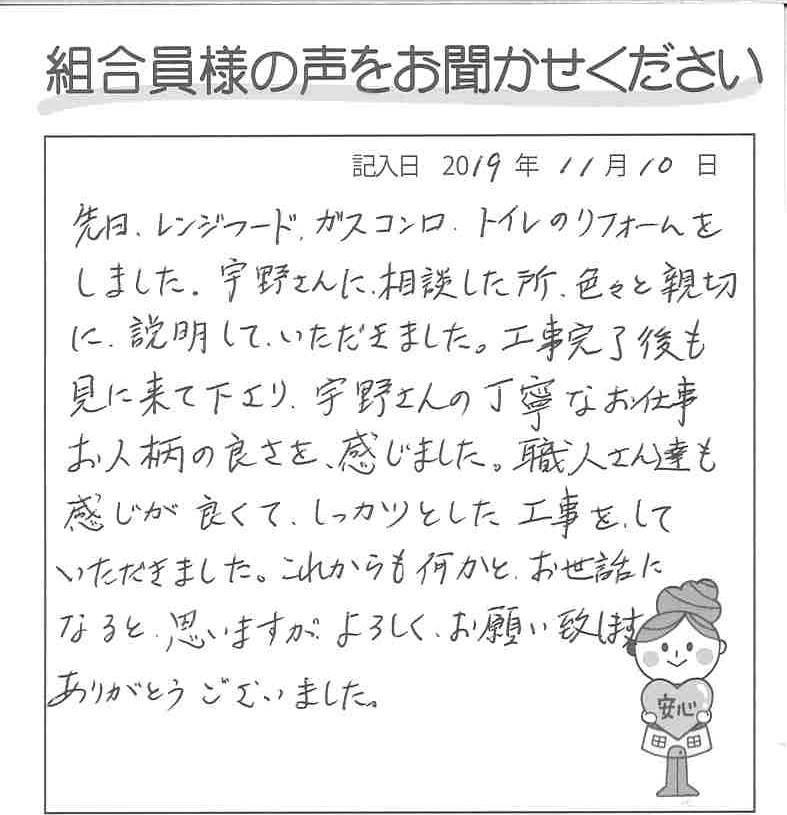 組合員様の声をお聞かせください
記入日 2019 年 11 月 10 日
先日、レンジフード、ガスコンロ、トイレのリフォームを
しました。宇野さんに、相談した所、色々と親切
に、説明して、いただきました。工事完了後も
見に来て下さり、宇野さんの丁寧なお仕事
お人柄の良さを、感じました。職人さん達も
感じが良くて、しっかりとした工事を、して
いただきました。これからも何かと、お世話に
なると、思いますが、よろしく、お願い致します
ありがとうございました。
安心